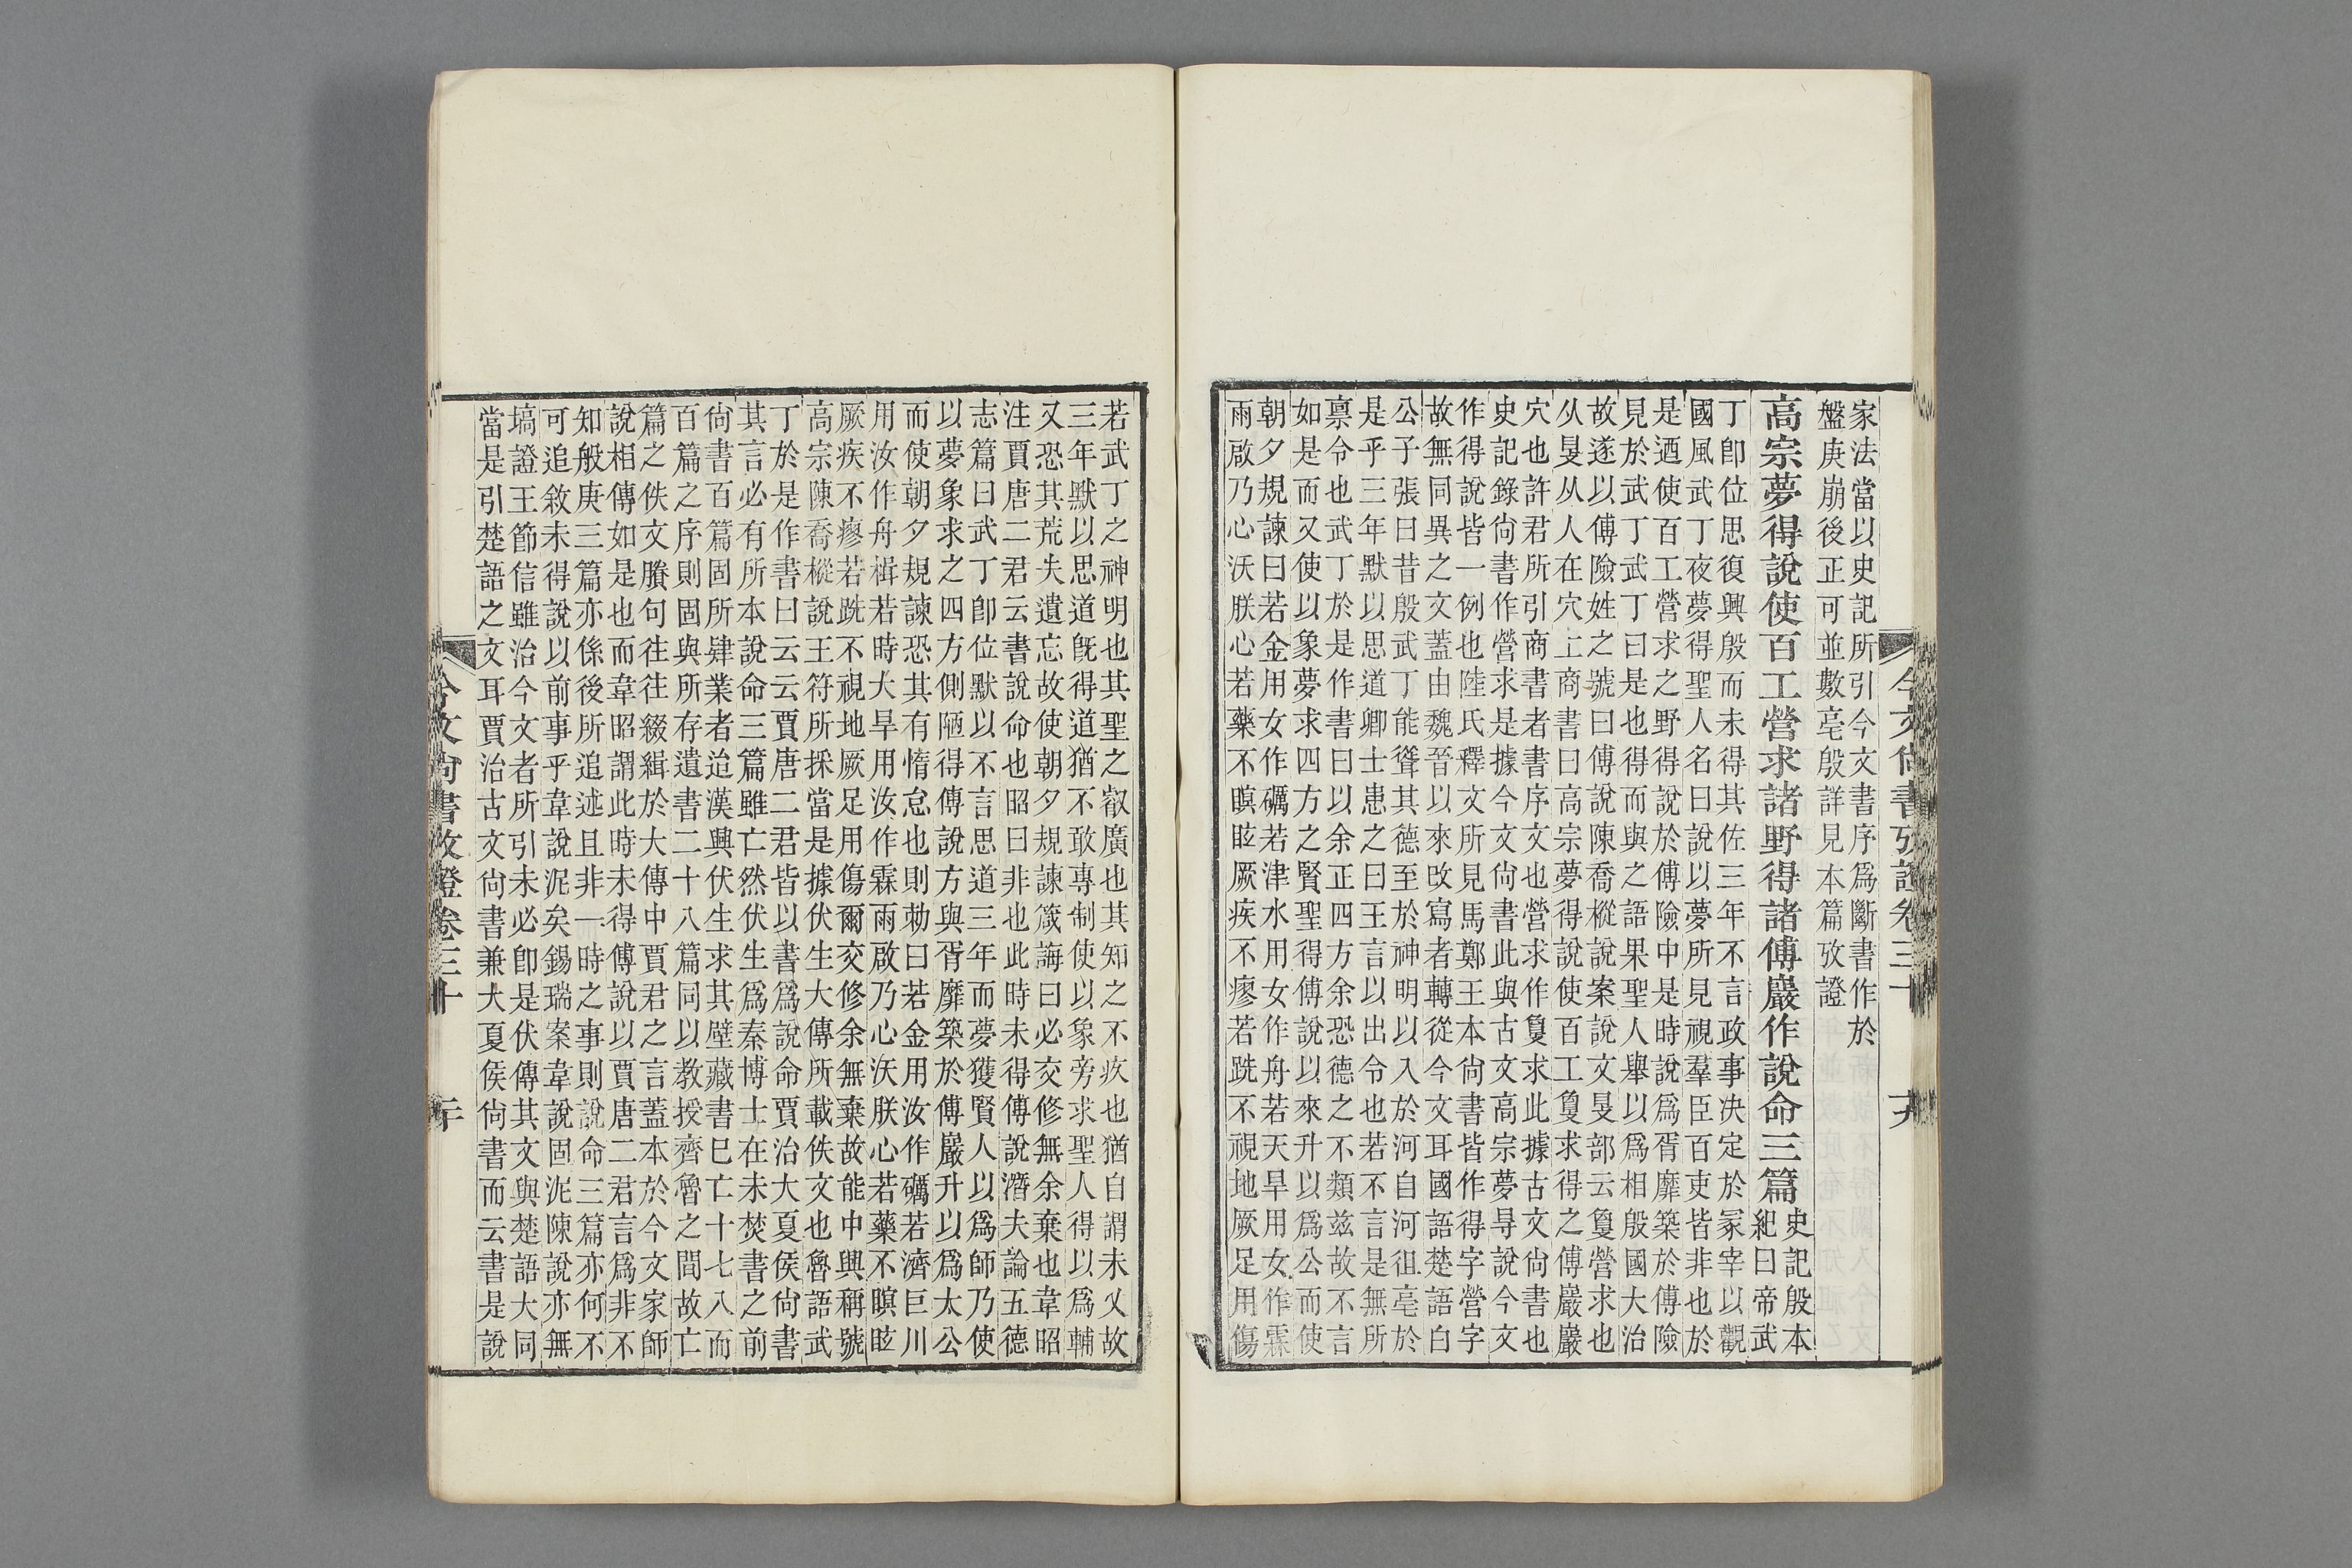 今文尚書攷證卷三十
十九
家法當以史記所引今文書序爲斷書作於
盤庚崩後正可並數亳殷詳見本篇攷證
高宗夢得說使百工營求諸野得諸傅巖作說命三篇
史記殷本
紀曰帝武
丁卽位思復興殷而未得其佐三年不言政事決定於冢宰以觀
國風武丁夜夢得聖人名曰說以夢所見視羣臣百吏皆非也於
是迺使百工營求之野得說於傅險中是時說爲胥靡築於傅險
見於武丁武丁曰是也得而與之語果聖人舉以爲相殷國大治
故遂以傅險姓之號曰傅說陳喬樅說案說文㫗部云夐營求也
从㫗从人在穴上商書曰高宗夢得說使百工夐求得之傅巖巖
穴也許君所引商書者書序文也營求作夐求此據古文尚書也
史記錄尚書作營求是據今文尚書此與古文高宗夢㝵說今文
作得說皆一例也陸氏釋文所見馬鄭王本尚書皆作得字營字
故無同異之文蓋由魏晉以來改寫者轉從今文耳國語楚語白
公子張曰昔殷武丁能聳其德至於神明以入於河自河徂亳於
是乎三年默以思道卿士患之曰王言以出令也若不言是無所
稟令也武丁於是作書曰以余正四方余恐德之不類茲故不言
如是而又使以象夢求四方之賢聖得傅說以來升以爲公而使
朝夕規諫曰若金用女作礪若津水用女作舟若天旱用女作霖
雨啟乃心沃朕心若藥不瞑眩厥疾不瘳若跣不視地厥足用傷
若武丁之神明也其聖之叡廣也其知之不疚也猶自謂未乂故
三年默以思道旣得道猶不敢專制使以象旁求聖人得以爲輔
又恐其荒失遺忘故使朝夕規諫箴誨曰必交修無余棄也韋昭
注賈唐二君云書說命也昭曰非也此時未得傅說潛夫論五德
志篇曰武丁卽位默以不言思道三年而夢獲賢人以爲師乃使
以夢象求之四方側陋得傅說方與胥靡築於傅巖升以爲太公
而使朝夕規諫恐其有惰怠也則勑曰若金用汝作礪若濟巨川
用汝作舟楫若時大旱用汝作霖雨啟乃心沃朕心若藥不瞑眩
厥疾不瘳若跣不視地厥足用傷爾交修余無棄故能中興稱號
高宗陳喬樅說王符所採當是據伏生大傳所載佚文也魯語武
丁於是作書曰云云賈唐二君皆以書爲說命賈治大夏侯尚書
其言必有所本說命三篇雖亡然伏生爲秦博士在未焚書之前
尚書百篇固所肄業者迨漢興伏生求其壁藏書巳亡十七八而
百篇之序則固與所存遺書二十八篇同以教授齊魯之間故亡
篇之佚文賸句往往綴緝於大傳中賈君之言蓋本於今文家師
說相傳如是也而韋昭謂此時未得傅說以賈唐二君言爲非不
知般庚三篇亦係後所追述且非一時之事則說命三篇亦何不
可追敘未得說以前事乎韋說泥矣錫瑞案韋說固泥陳說亦無
塙證王節信雖治今文者所引未必卽是伏傳其文與楚語大同
當是引楚語之文耳賈治古文尚書兼大夏侯尚書而云書是說
今文尚書攷證卷三十
二十